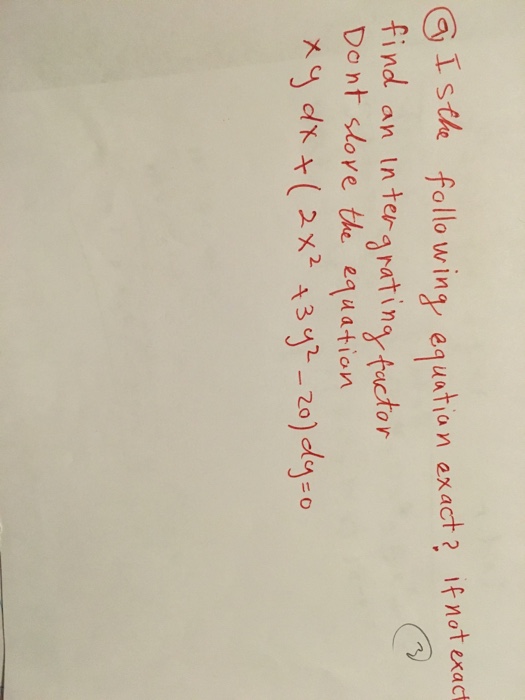 Q Is the following equation exact? if not exact
find an Intergrating factor
Dont slove the equation
xy dx + ( 2x² + 3y² - 20) dy = 0
3